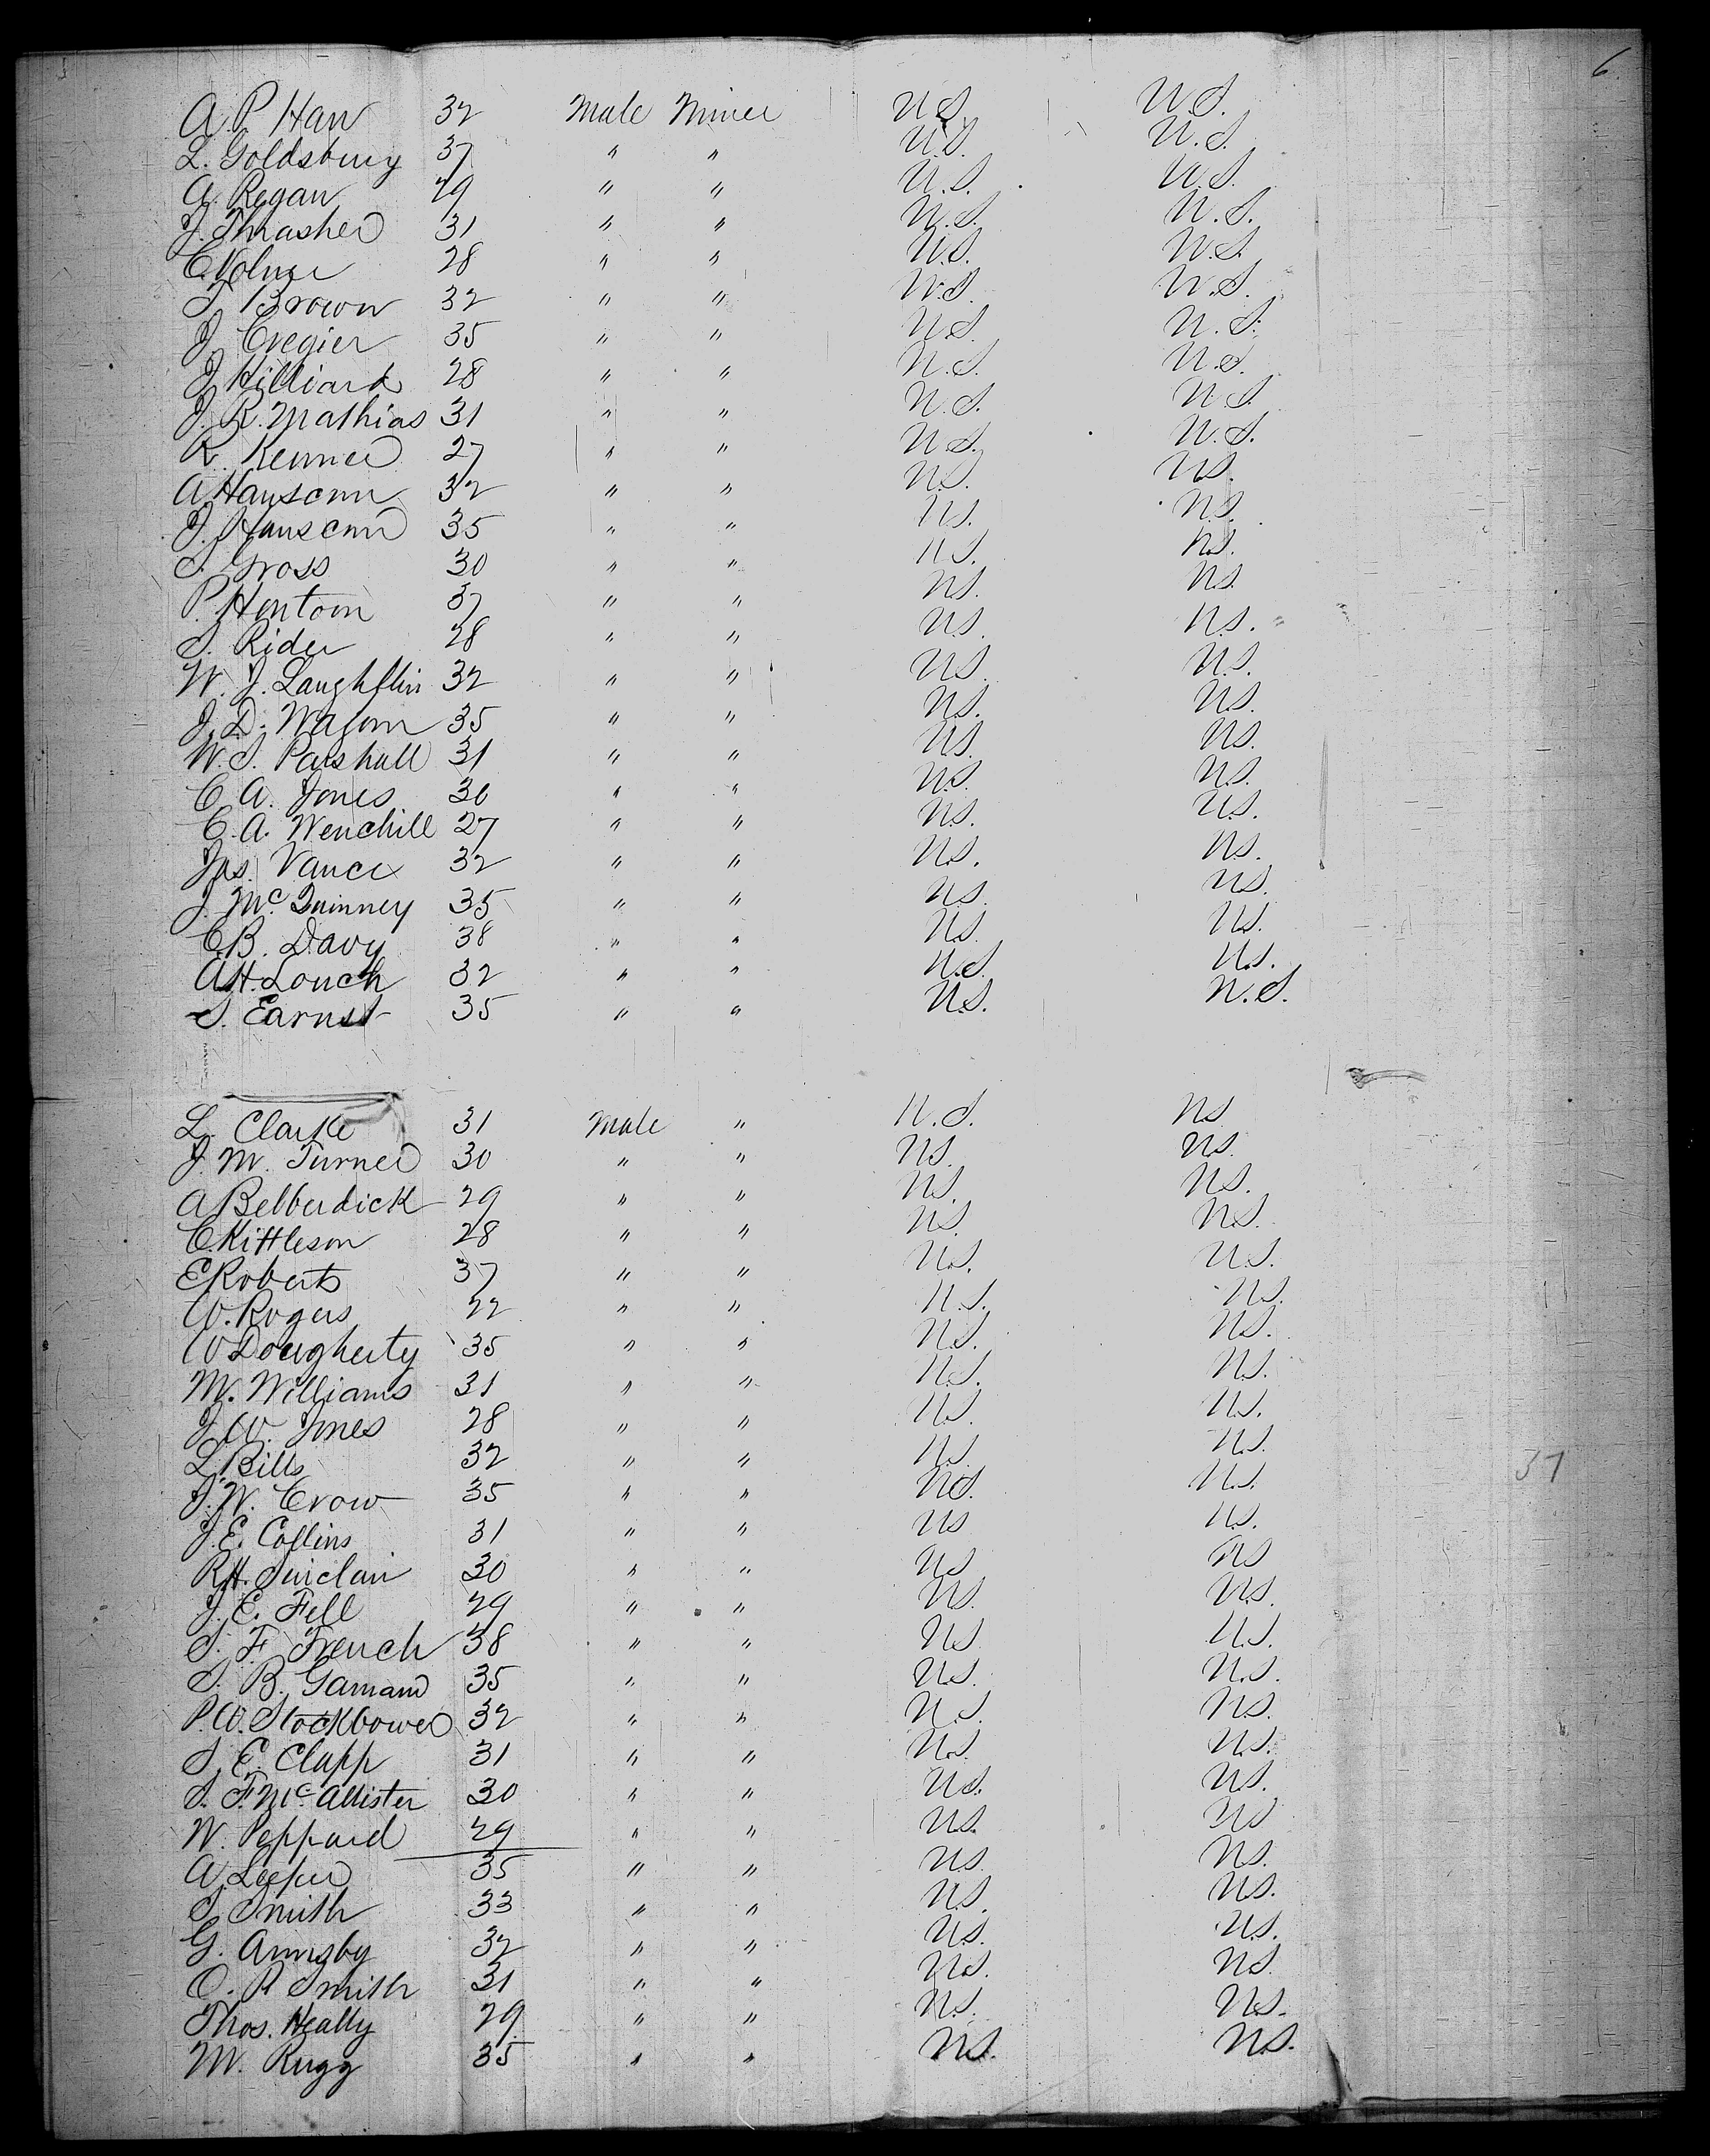 6.
A. P. Haw 32 Male Miner U.S. U.S.
L. Goldsbury 37 " " U.S. U.S.
A. Regan 29 " " U.S. U.S.
J. Thrasher 31 " " U.S. U.S.
C. Volmer 28 " " U.S. U.S.
T. Brown 32 " " U.S. U.S.
J. Cregier 35 " " U.S. U.S.
J. Hilliard 28 " " U.S. U.S.
J. R. Mathias 31 " " U.S. U.S.
R. Kenner 27 " " U.S. U.S.
A Hanscom 32 " " U.S. U.S.
J. Hanscom 35 " " U.S. U.S.
S. Gross 30 " " U.S. U.S.
P. Hentom 37 " " U.S. U.S.
S. Rider 28 " " U.S. U.S.
W. J. Laughflin 32 " " U.S. U.S.
J. D. 35 " " U.S. U.S.
W. S. Parshall 31 " " U.S. U.S.
C. A. Jones 30 " " U.S. U.S.
C. A. Wenchill 27 " " U.S. U.S.
Jas. Vance 32 " " U.S. U.S.
J. Mc. Quinney 35 " " U.S. U.S.
C B. Davy 38 " " U.S. U.S.
A H. Louch 32 " " U.S. U.S.
S. Earnst 35 " " U.S. U.S.
L. Clarke 31 Male " U.S. U.S.
J. M. Turner 30 " " U.S. U.S.
A Belberdick 29 " " U.S. U.S.
C. Kittleson 28 " " U.S. U.S.
E Roberts 37 " " U.S. U.S.
W. Rogers 22 " " U.S. U.S.
W Dougherty 35 " " U.S. U.S.
M. Williams 31 " " U.S. U.S.
J. W. Jones 28 " " U.S. U.S.
L. Bills 32 " " U.S. U.S.
J. W. Crow 35 " " U.S. U.S.
37
J. E. Collins 31 " " U.S. U.S.
R H. Sinclair 30 " " U.S. U.S.
J. E. Fell 29 " " U.S. U.S.
S. F. French 38 " " U.S. U.S.
S. B. Gamand 35 " " U.S. U.S.
P. W. Stockbower 32 " " U.S. U.S.
S. E. Clapp 31 " " U.S. U.S.
S. F. Mc. Allister 30 " " U.S. U.S.
W. Peppard 29 " " U.S. U.S.
A. Leeper 35 " " U.S. U.S.
S. Smith 33 " " U.S. U.S.
G. Armsby 32 " " U.S. U.S.
O. R Smith 31 " " U.S. U.S.
Thos. Heally 29 " " U.S. U.S.
M. Rugg 35 " " U.S. U.S.